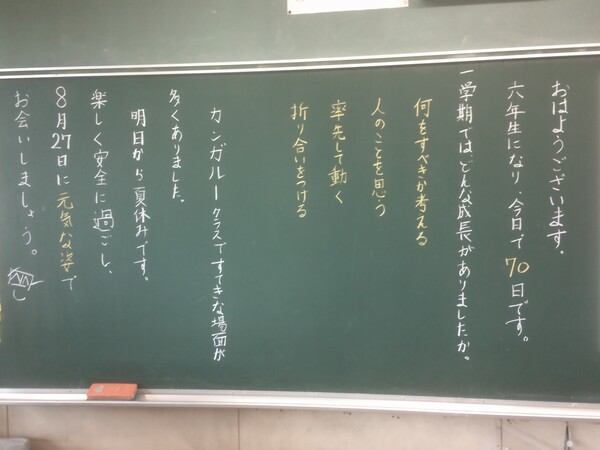 おはようございます。
六年生になり、今日で70日です。
一学期では、どんな成長がありましたか。
何をすべきか考える
人のことを思う
率先して動く
折り合いをつける
カンガルークラスですてきな場面が
多くありました。
明日から夏休みです。
楽しく安全に過ごし、
8月27日に元気な姿で
お会いしましょう。